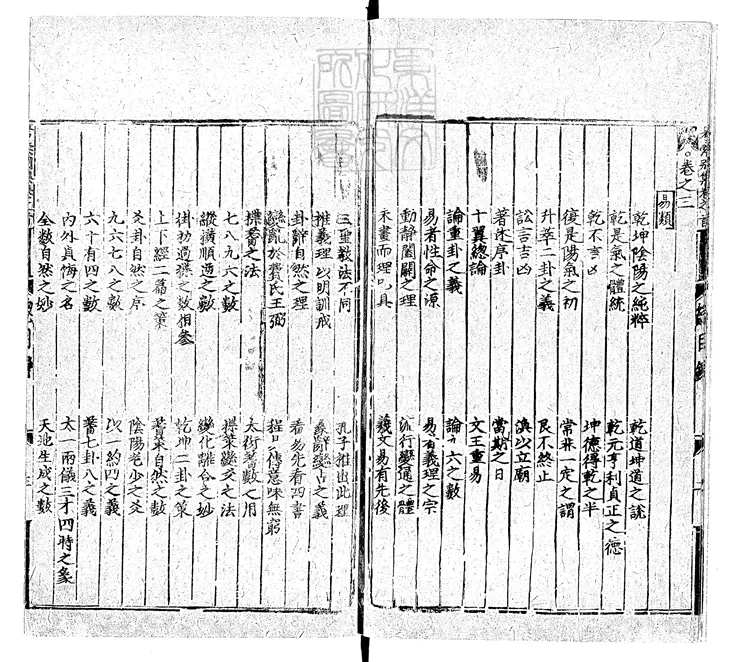 卷之三
易類
乾坤陰陽之純粹
乾道坤道之說
乾是氣之體統
乾元亨利貞正之德
乾不言凶
坤德得乾之半
復是陽氣之初
常非一定之謂
升萃二卦之義
艮不終止
訟言吉凶
渙以立廟
著述序卦
當期之日
十翼總論
文王重易
論重卦之義
論九六之數
易者性命之源
易有義理之宗
動靜闔闢之理
流行變通之體
未畫而理已具
羲文易有先後
三聖數法不同
孔子推出此理
推義理以明訓戒
彖辭變占之義
卦辭自然之理
看易先看四書
亂於費氏王弼
程易傳意味無窮
揲蓍之法
大衍蓍數之用
七八九六之數
揲策變爻之法
縱橫順逆之數
變化離合之妙
掛扐過揲之數相參
乾坤二卦之策
上下經二篇之策
蓍策自然之數
爻卦自然之序
陰陽老少之爻
九六七八之數
以一約四之義
六十有四之數
蓍七卦八之義
內外貞悔之名
太一兩儀三才四時之象
全數自然之妙
天地生成之數